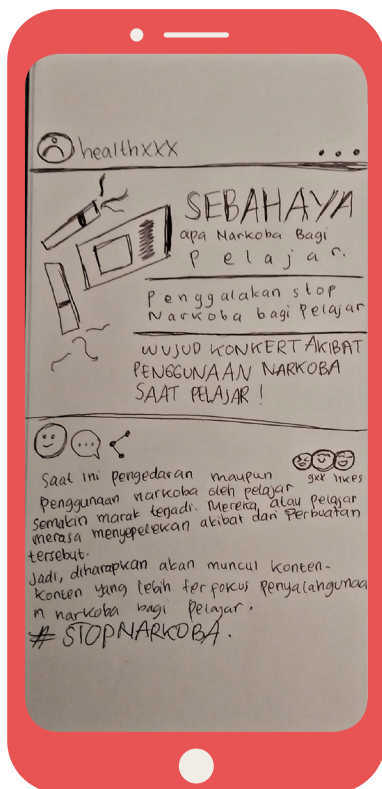 healthxxx
SEBAHAYA
apa Narkoba Bagi
Pelajar.
Penggalakan stop
Narkoba bagi Pelajar
WUJUD KONKERT AKIBAT
PENGGUNAAN NARKOBA
SAAT PELAJAR !
9xx likes
Saat Ini pengedaran maupun
Penggunaan narkoba oleh pelajar
Semakin marak tegadi. Mereka atau pelajar
merasa menyepelekan akibat dari Perbuatan
tersebut.
Jadi, diharapkan akan muncul konten-
konten yang lebih terfokus penyalahgunaa
n narkoba bagi Pelajar.
# STOPNARKOBA.